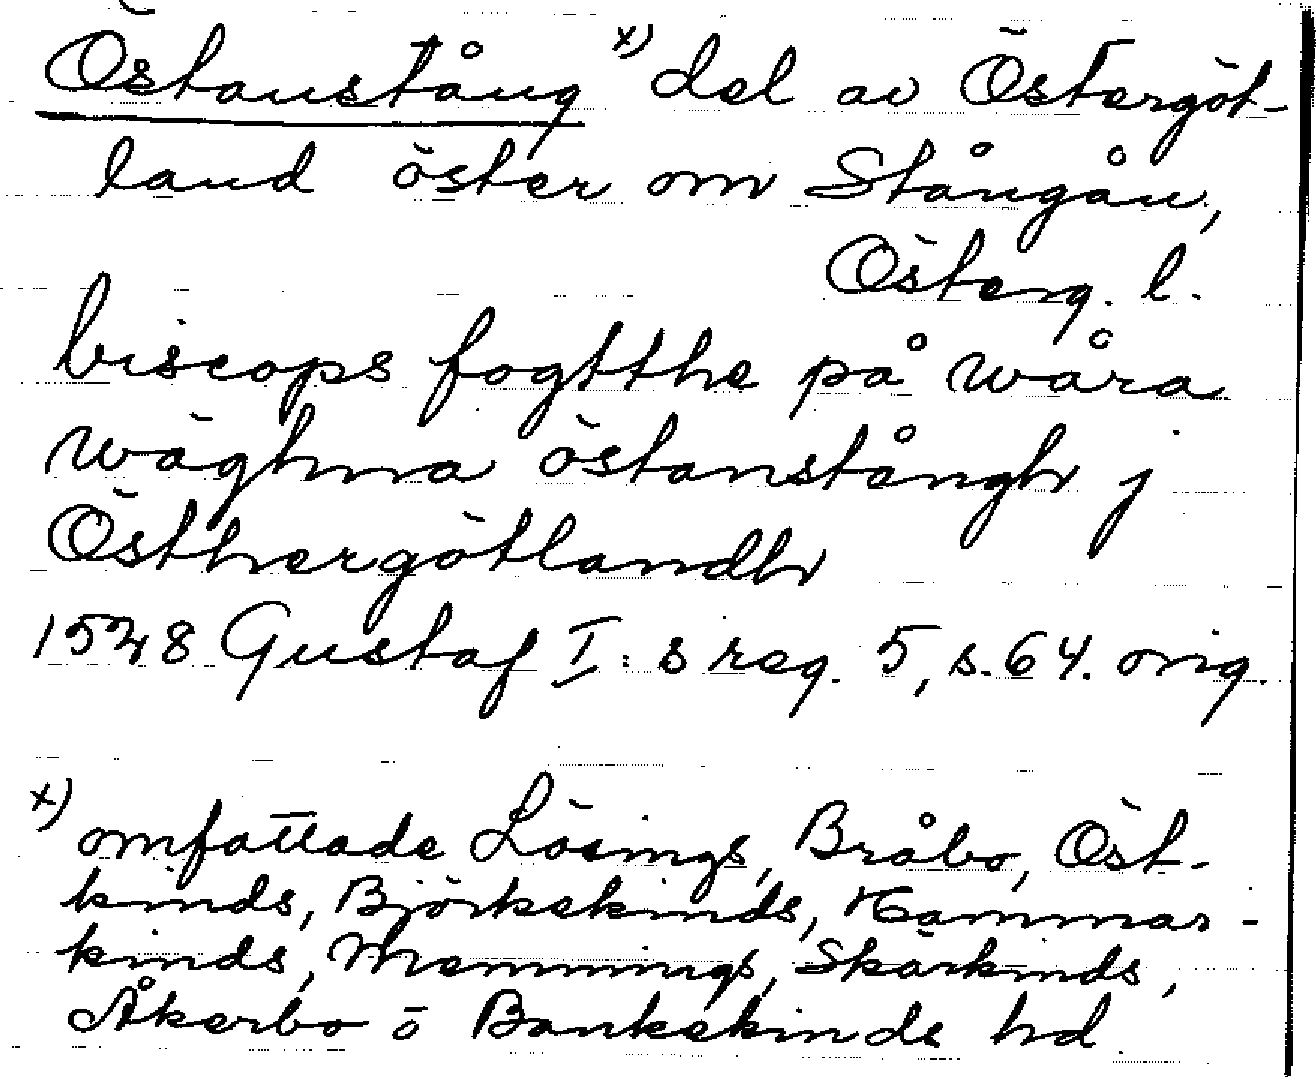 Östanstång x) del av Östergöt-
land öster om Stångån,
Österg. l.
biscops fogtthe på wåra
wäghna östanstångh j
Östhergötlandh
1528 Gustaf I:s reg. 5, s. 64. orig.
x) omfattade Lösings, Bråbo, Öst-
kinds, Björkekinds, Hammar-
kinds, Memmings, Skärkinds,
Åkerbo o Bankekinds hd